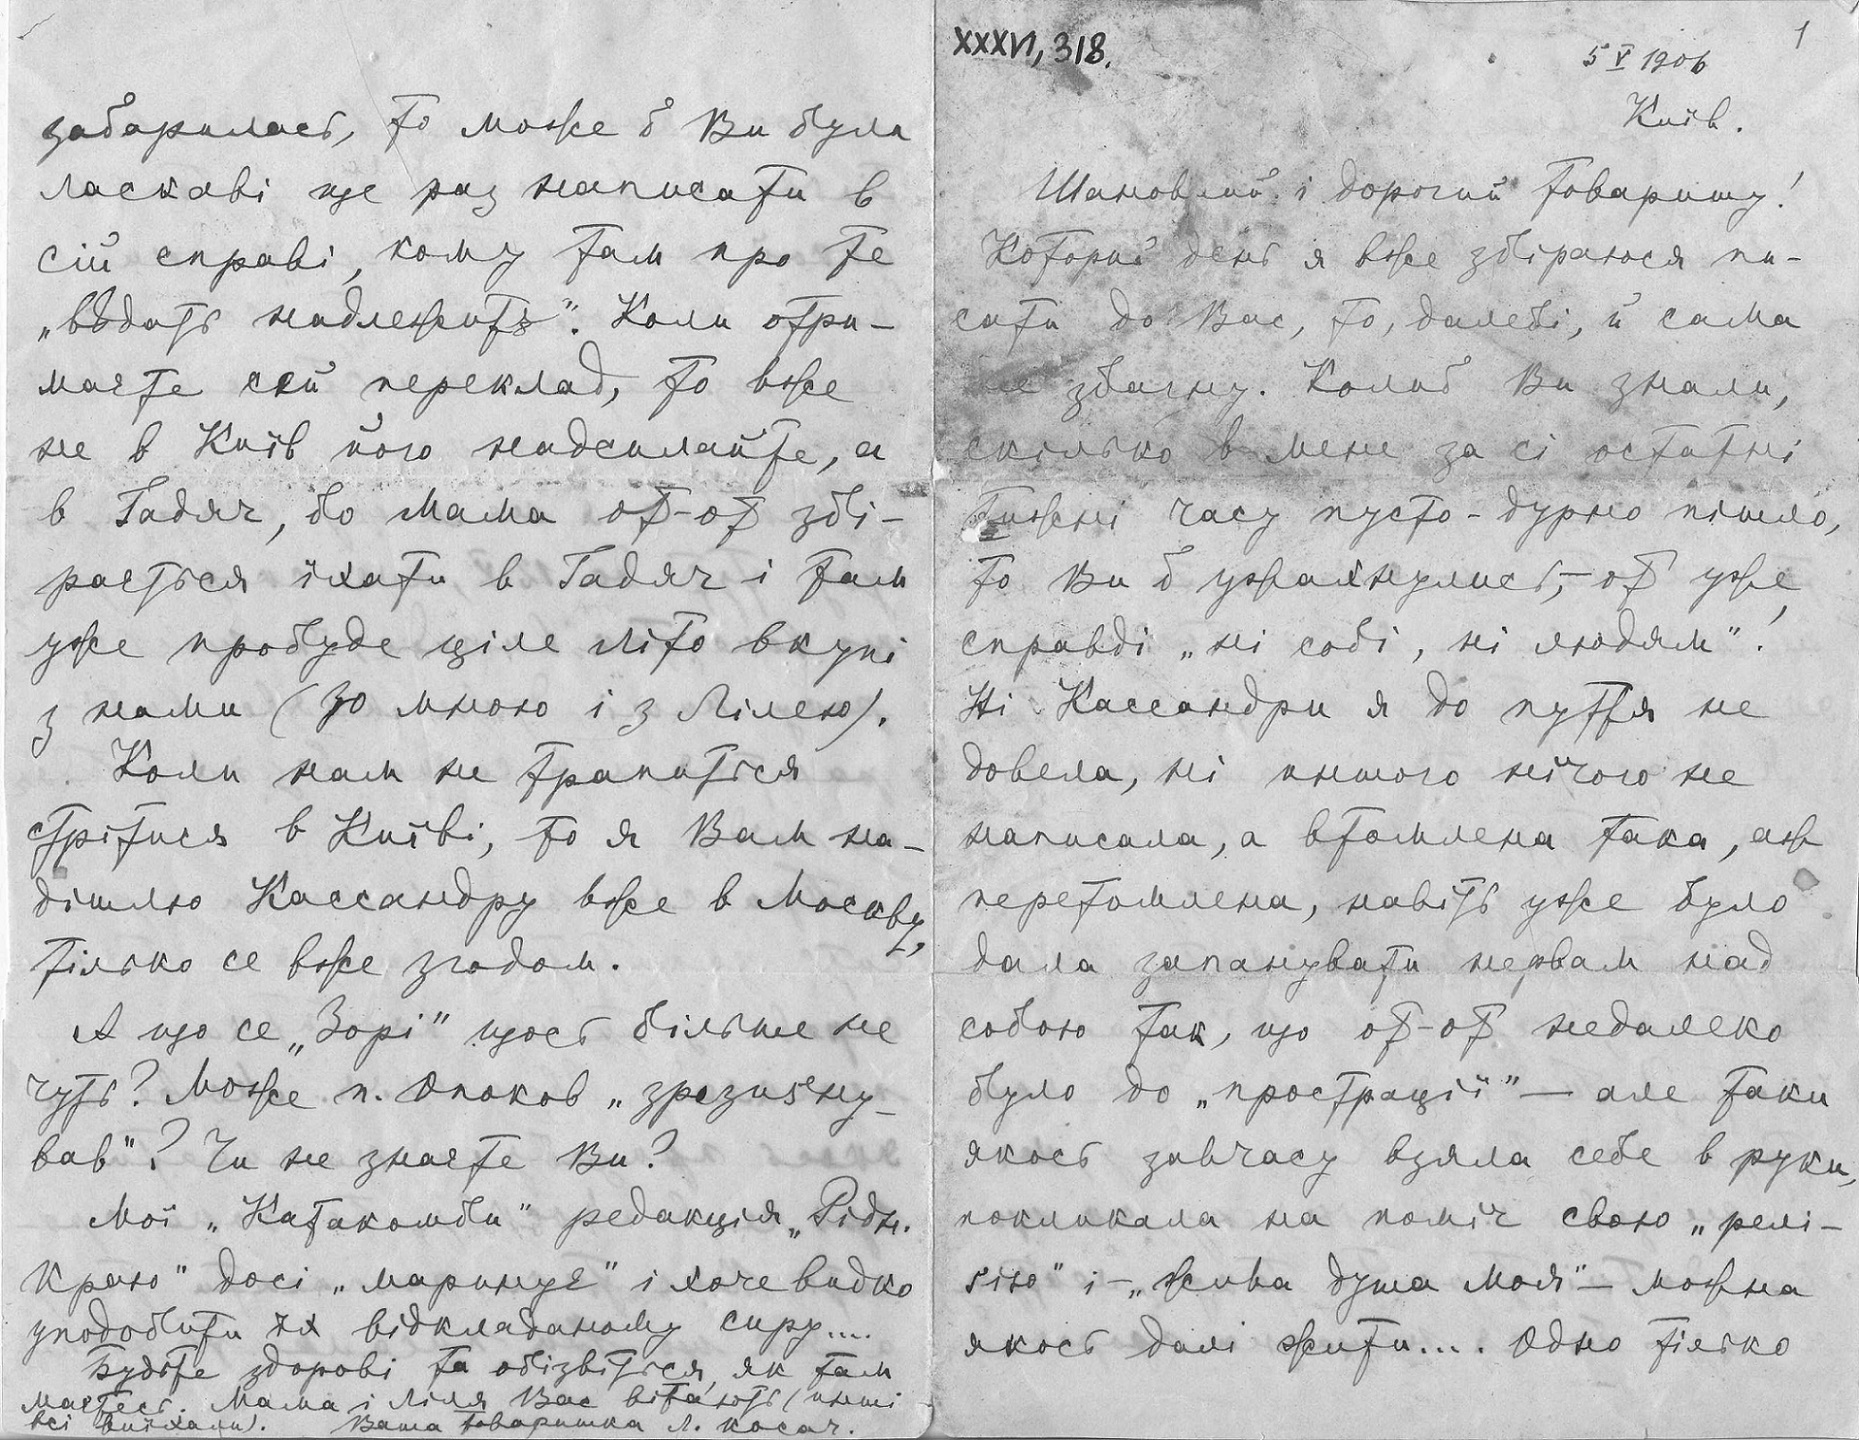 XXXVI, 318.
1
5 V 1906
Київ.
Шановний і дорогий товаришу!
Которий день я вже збіраюся пи-
сати до Вас, то, далебі, й сама
не збагну. Колиб Ви знали,
скілько в мене за сі остатні
тижні часу пусто-дурно пішло,
то Ви б ужахнулись, – от уже
справді „ні собі, ні людям"!
Ні Кассандри я до пуття не
довела, ні иншого нічого не
написала, а втомлена така, аж
перетомлена, навіть уже було
дала запанувати нервам над
собою так, що от-от недалеко
було до „прострації" — але таки
якось завчасу взяла себе в руки,
покликала на поміч свою „релі-
ґію" і – „жива душа моя" – можна
якось далі жити.... Одно тілько
забарилась, то може б Ви були
ласкаві ще раз написати в
сій справі, кому там про те
„вѣдать надлежитъ". Коли отри-
маєте сей переклад, то вже
не в Київ його надсилайте, а
в Гадяч, бо мама от-от збі-
рається їхати в Гадяч і там
уже пробуде ціле літо вкупі
з нами (зо мною і з Лілею).
Коли нам не трапиться
стрітися в Київі, то я Вам на-
дішлю Кассандру вже в Москву,
тілько се вже згодом.
А що се „Зорі" щось більше не
чуть? Може п. Опоков „зрезиґну-
вав"? Чи не знаєте Ви?
Мої „Катакомби" редакція „Рідн.
Краю" досі „маринує" і хоче видко
уподобити їх відкладаному сиру....
Будьте здорові та обізвіться, як там
маєтесь. Мама і Ліля Вас вітають (инші
всі виїхали). Ваша товаришка Л. Косач.